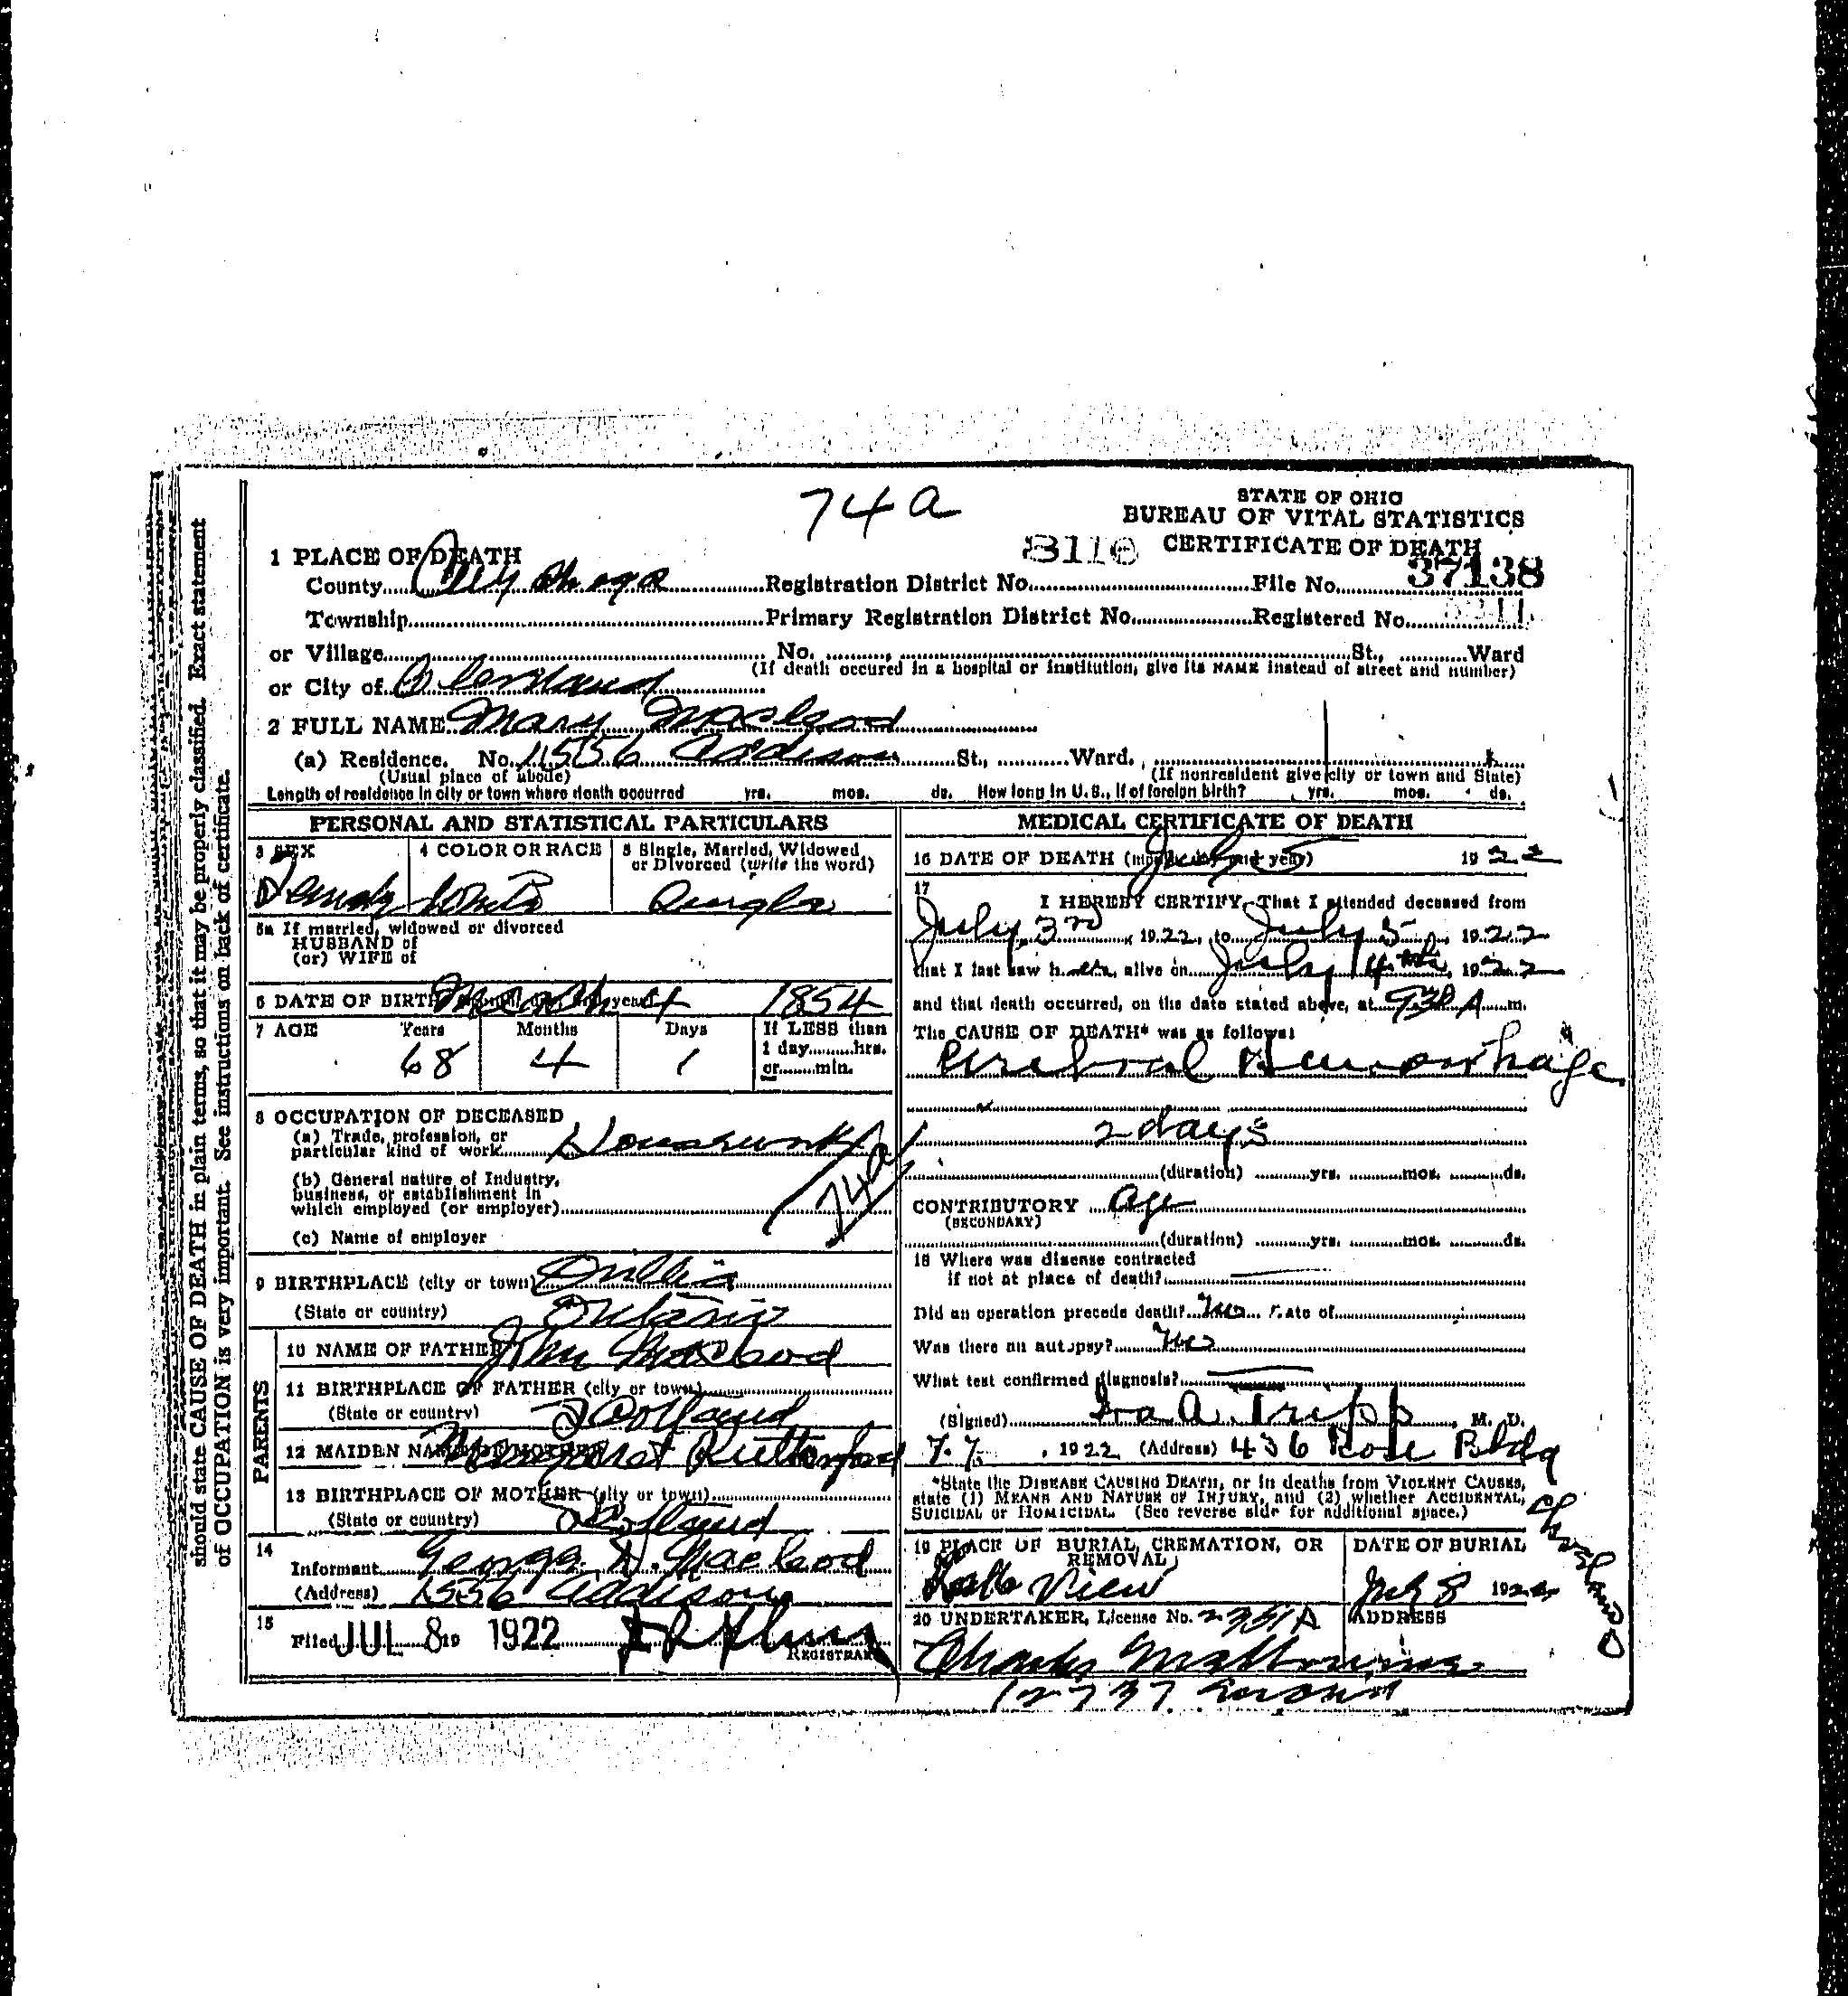 should state CAUSE OF DEATH in plain terms, so that it may be properly classified. Exact statement
of OCCUPATION is very important. See instructions on back of certificate.
74a
STATE OF OHIO
BUREAU OF VITAL STATISTICS
CERTIFICATE OF DEATH
1 PLACE OF DEATH
County Cuyahoga Registration District No. 3110 File No. 37138
Township Primary Registration District No. Registered No.
or Village No. St., Ward
(If death occured in a hospital or institution, give its NAME instead of street and number)
or City of Cleveland
2 FULL NAME Mary Macleod
(a) Residence. No. 1556 Addison St., Ward.,
(Usual place of abode) (If nonresident give city or town and State)
Length of residence in city or town where death occurred yrs. mos. ds. How long in U. S., if of foreign birth? yrs. mos. ds.
PERSONAL AND STATISTICAL PARTICULARS
3 SEX 4 COLOR OR RACE 5 Single, Married, Widowed
or Divorced (write the word)
Female White Single
5a If married, widowed or divorced
HUSBAND of
(or) WIFE of
6 DATE OF BIRTH (month, day, and year) March 4 1854
7 AGE Years Months Days If LESS than
1 day hrs.
or min.
68 4 1
8 OCCUPATION OF DECEASED
(a) Trade, profession, or
particular kind of work Housework
74a
(b) General nature of Industry,
business, or establishment in
which employed (or employer)
(c) Name of employer
9 BIRTHPLACE (city or town)
(State or country) Ontario
PARENTS
10 NAME OF FATHER John Macleod
11 BIRTHPLACE OF FATHER (city or town)
(State or country) Scotland
12 MAIDEN NAME OF MOTHER Margaret Rutherford
13 BIRTHPLACE OF MOTHER (city or town)
(State or country) Scotland
14
Informant George N. Macleod
(Address) 1556 Addison
15
Filed JUL 8 19 1922
REGISTRAR
MEDICAL CERTIFICATE OF DEATH
16 DATE OF DEATH (month, day and year) July 5 1922
17
I HEREBY CERTIFY, That I attended deceased from
July 3rd, 1922, to July 5, 1922
that I last saw her alive on July 4th, 1922
and that death occurred, on the date stated above, at 930 A m.
The CAUSE OF DEATH* was as follows:
Cerebral Hemorrhage
2 days
(duration) yrs. mos. ds.
CONTRIBUTORY Age
(SECONDARY)
(duration) yrs. mos. ds.
18 Where was disease contracted
if not at place of death?
Did an operation precede death? No Date of
Was there an autopsy? No
What test confirmed diagnosis?
(Signed) Ira A. Tripp, M. D.
7.7, 1922 (Address) 436 Rose Bldg
Cleveland O
*State the DISEASE CAUSING DEATH, or in deaths from VIOLENT CAUSES,
state (1) MEANS AND NATURE OF INJURY, and (2) whether ACCIDENTAL,
SUICIDAL or HOMICIDAL. (See reverse side for additional space.)
19 PLACE OF BURIAL, CREMATION, OR
REMOVAL
DATE OF BURIAL
Lake View July 8 1922
20 UNDERTAKER, License No. ADDRESS
Charles
12737